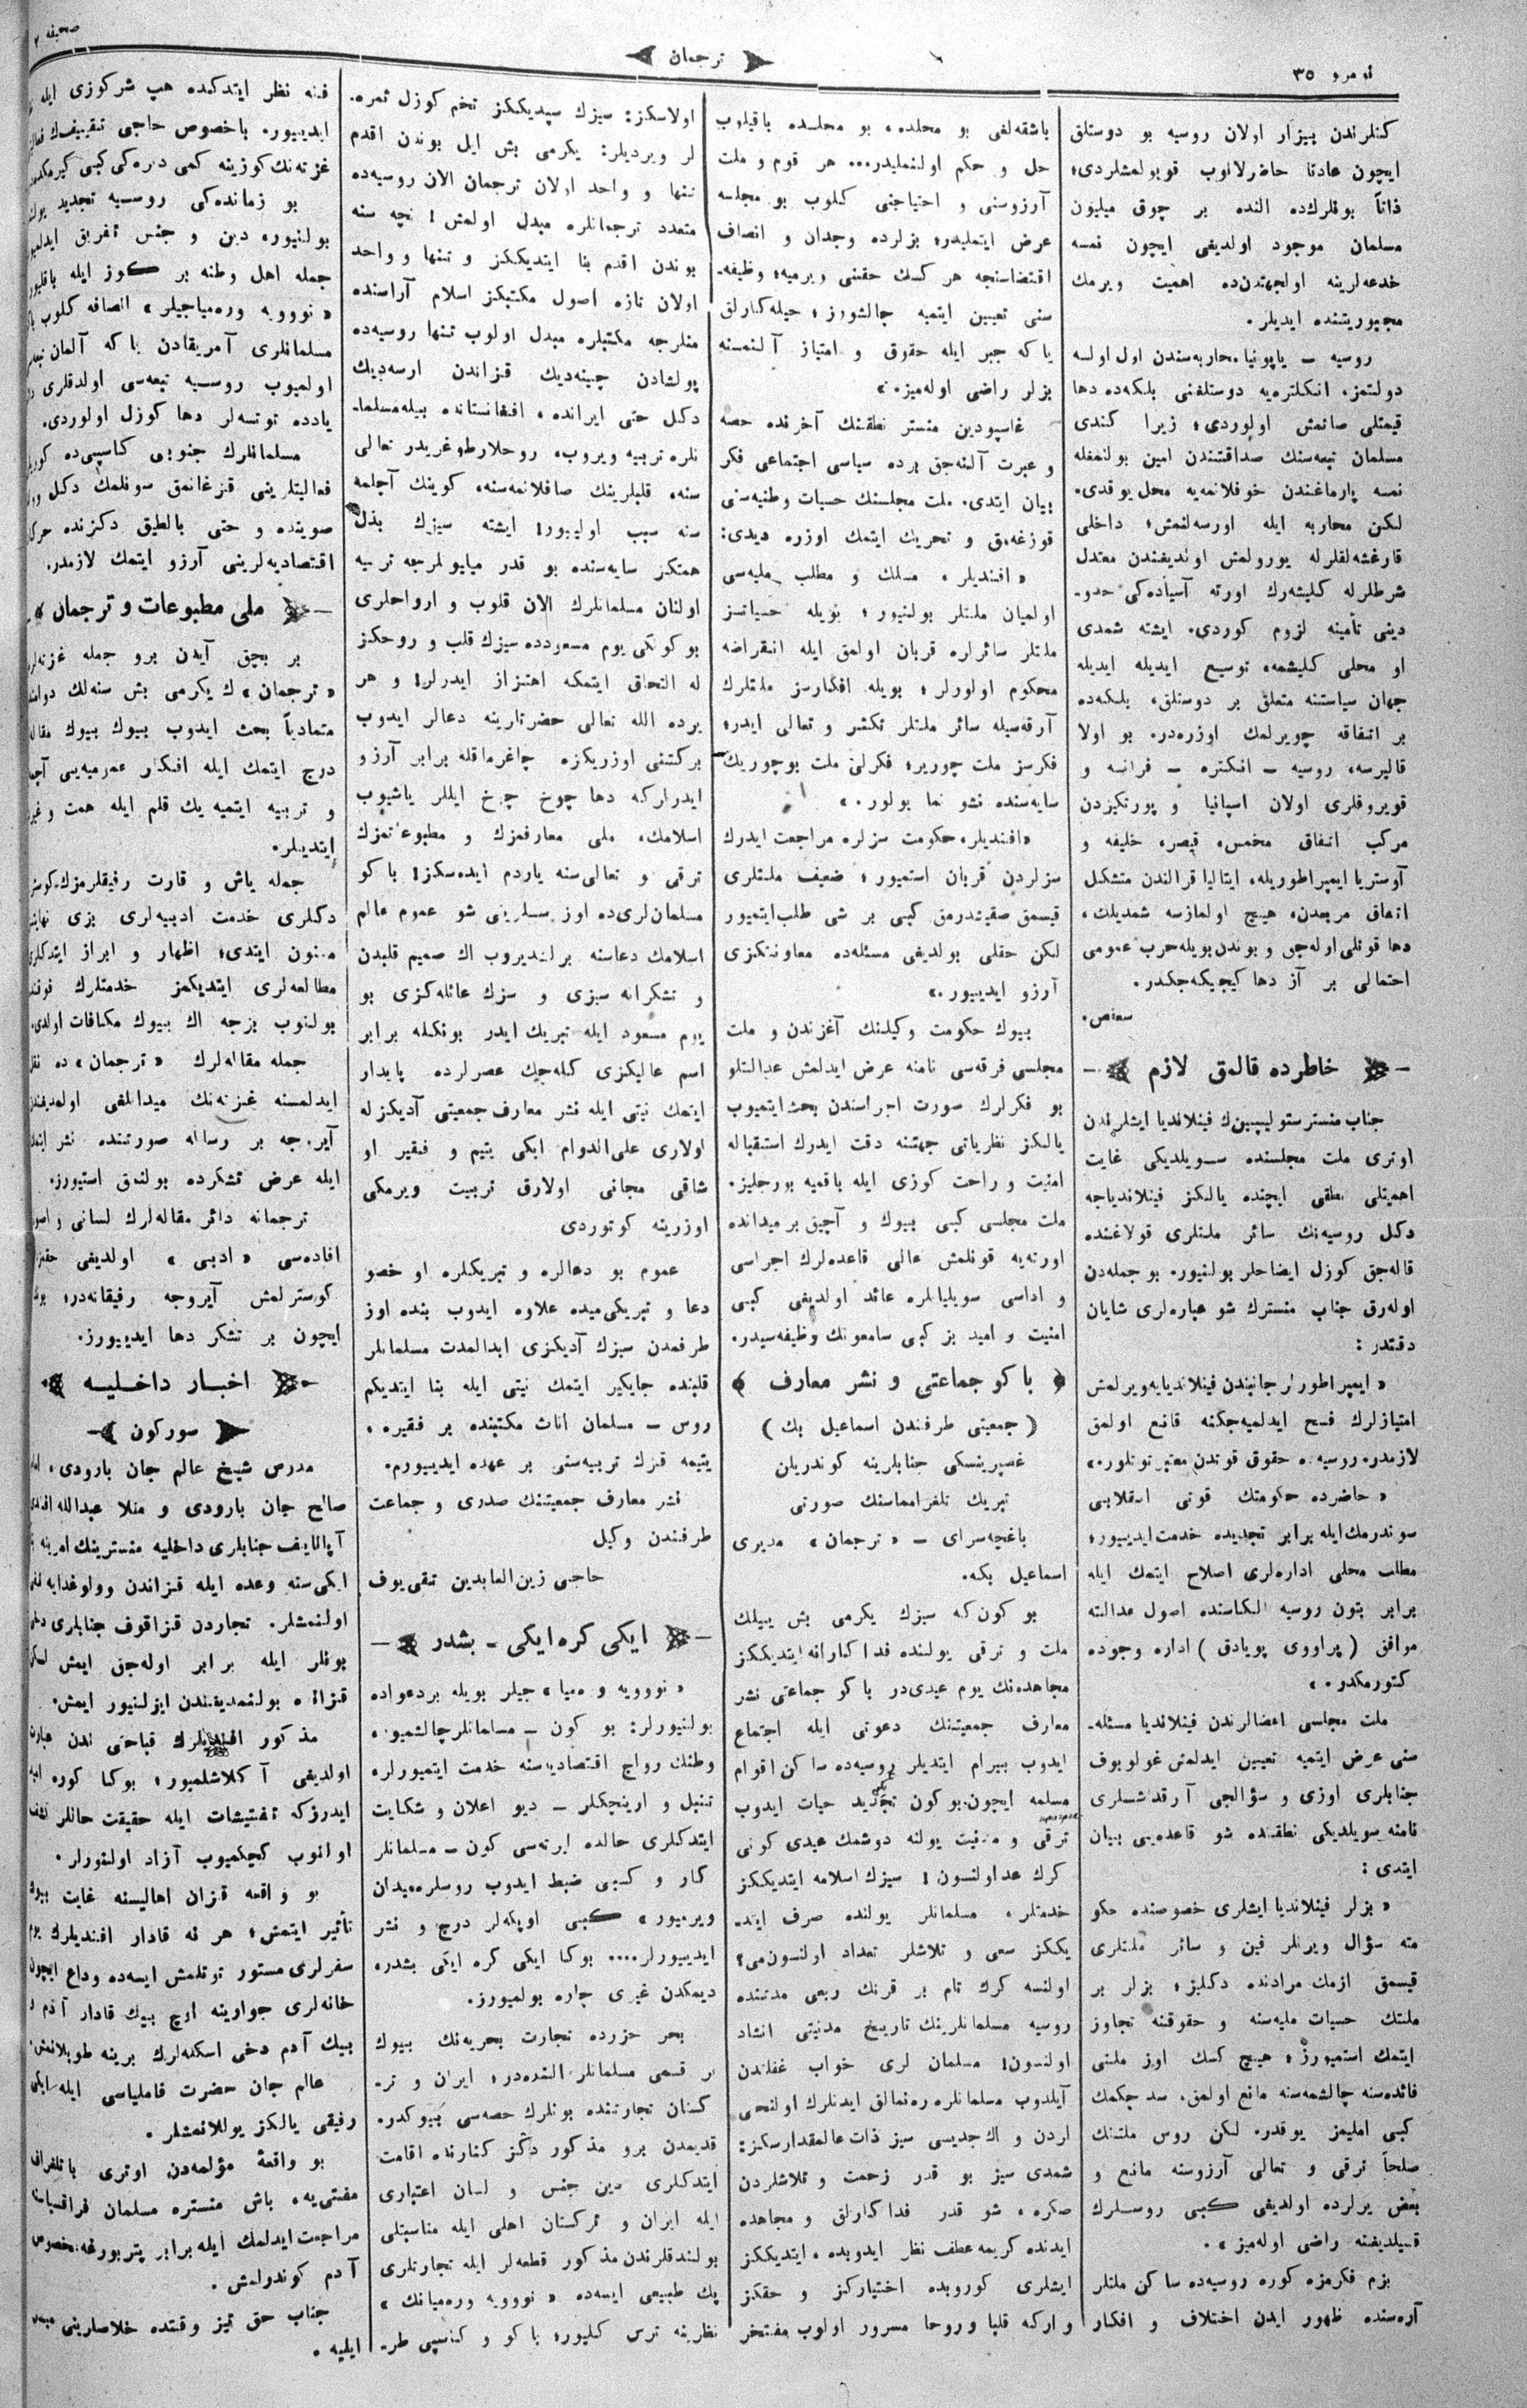 صحیفه ۲
ترجمان
نومرو ۳۵
كنلرندن بیزار اولان روسیه بو دوستلق
ایچون عادتا حاضرلانوب قویولمشلردی؛
ذاتاً بونلرك‌ده النده بر چوق میلیون
مسلمان موجود اولدیغی ایچون نمسه
خدعه‌لرینه اولجهتدن‌ده اهمیت ویرمك
مجبوریتنده ایدیلر.
روسیه – یاپونیا محاربه‌سندن اول اولسه
دولتمز، انكلتره‌یه دوستلغنی بلكه‌ده دها
قیمتلی صاتمش اولوردی؛ زیرا كندی
مسلمان تبعه‌سنك صداقتندن امین بولنمغله
نمسه پارماغندن خوفلانمه‌یه محل یوقدی.
لكن محاربه ایله اورسه‌لنمش؛ داخلی
قارغشه‌لقلرله یورولمش اولدیغندن معتدل
شرطلرله كلیشه‌رك اورته آسیاده‌كی حدو-
دینی تأمینه لزوم كوردی. ایشته شمدی
او محلی كلیشمه، توسیع ایدیله ایدیله
جهان سیاستنه متعلق بر دوستلق، بلكه‌ده
بر اتفاقه چویرلمك اوزره‌در. بو اولا
قالیرسه، روسیه – انكلتره – فرانسه و
قویروقلری اولان اسپانیا و پورتكیزدن
مركب اتفاق مخمس، قیصر، خلیفه و
آوستریا ایمپراطوریله، ایتالیا قرالندن متشكل
اتفاق مربعدن، هیچ اولمازسه شمدیلك،
دها قوتلی اوله‌جق و بوندن بویله حرب عمومی
احتمالی بر آز دها كیجیكه‌جكدر.
خاطرده قالمق لازم
جناب منستر ستولیپین‌ك فینلاندیا ایشلرندن
اوتری ملت مجلسنده سویلدیكی غایت
اهمیتلی نطقی ایچنده یالكز فینلاندیاجه
دكل روسیه‌نك سائر ملتلری قولاغنده
قاله‌جق كوزل ایضاحلر بولنیور. بو جمله‌دن
اوله‌رق جناب منسترك شو عباره‌لری شایان
دقتدر :
« ایمپراطورلر جانبندن فینلاندیایه ویرلمش
امتیازلرك فسخ ایدلمیه‌جكنه قانع اولمق
لازمدر. روسیه‌ده حقوق قوتدن معتبر توتلور.»
« حاضرده حكومتك قوتی انقلابی
سوندرمك ایله برابر تجدیده خدمت ایدیبور؛
مطلب محلی اداره‌لری اصلاح ایتمك ایله
برابر بتون روسیه الكاسنده اصول عدالته
موافق ( پراووی پویادق ) اداره وجوده
كتورمكدر. »
ملت مجلسی اعضالرندن فینلاندیا مسئله-
سنی عرض ایتمیه تعیین ایدلمش غولوبوف
جنابلری اوزی و سؤالجی آرقداشلری
نامنه سویلدیكی نطقنده شو قاعده‌یی بیان
ایتدی :
« بزلر فینلاندیا ایشلری خصوصنده حكو
مته سؤال ویرنلر فین و سائر ملتلری
قیسمق ازمك مرادنده دكلیز؛ بزلر بر
ملتك حسیات ملیه‌سنه و حقوقنه تجاوز
ایتمك استمیورز؛ هیچ كسك اوز ملتی
فائده‌سنه چالشمه‌سنه مانع اولمق، سد چكمك
كبی املیمز یوقدر. لكن روس ملتنك
صلحاً ترقی و تعالی آرزوسنه مانع و
بعض یرلرده اولدیغی كبی روسلرك
قیلدیغنه راضی اوله‌میز ».
بزم فكرمزه كوره روسیه‌ده ساكن ملتلر
آره‌سنده ظهور ایدن اختلاف و افكار
باشقه‌لغی بو محلده، بو مجلسده باقیلوب
حل و حكم اولنملیدر... هر قوم و ملت
آرزوسنی و احتیاجنی كلوب بو مجلسه
عرض ایتملیدر؛ بزلرده وجدان و انصاف
اقتضاسنجه هر كسك حقنی ویرمیه؛ وظیفه-
سنی تعیین ایتمیه چالشورز؛ حیله‌كارلق
یا كه جبر ایله حقوق و امتیاز آلنمسنه
بزلر راضی اوله‌میز. »
غاسپودین منستر نطقنك آخرنده حصه
و عبرت آلنه‌جق برده سیاسی اجتماعی فكر
بیان ایتدی. ملت مجلسنك حسیات وطنیه‌سنی
قوزغه‌مق و تحریك ایتمك اوزره دیدی:
« افندیلر، مسلك و مطلب ملیه‌سی
اولمیان ملتلر بولنیور؛ بویله حسیاتسز
ملتلر سائرلره قربان اولمق ایله انقراضه
محكوم اولورلر؛ بویله افكارسز ملتلرك
آرقه‌سیله سائر ملتلر تكثر و تعالی ایدر؛
فكرسز ملت چوریر؛ فكرلی ملت بو چوریك
سایه‌سنده نشو نما بولور. »
«افندیلر، حكومت سزلره مراجعت ایدرك
سزلردن قربان استمیور؛ ضعیف ملتلری
قیسمق صقیشدرمق كبی بر شی طلب ایتمیور
لكن حقلی بولدیغی مسئله‌ده معاونتكزی
آرزو ایدییور.»
بیوك حكومت وكیلنك آغزندن و ملت
مجلسی فرقه‌سی نامنه عرض ایدلمش عدالتلو
بو فكرلرك صورت اجراسندن بحث ایتمیوب
یالكز نظریاتی جهتنه دقت ایدرك استقباله
امنیت و راحت كوزی ایله باقمیه بورجلیز.
ملت مجلسی كبی بیوك و آچیق بر میدانده
اورته‌یه قونلمش عالی قاعده‌لرك اجراسی
و اداسی سویلیانلره عائد اولدیغی كبی
امنیت و امید بز كبی سامعونك وظیفه‌سیدر.
باكو جماعتی و نشر معارف
( جمعیتی طرفندن اسماعیل بك )
غصپرینسكی جنابلرینه كوندریلن
تبریك تلغرامماسنك صورتی
باغچه‌سرای – « ترجمان » مدیری
اسماعیل بكه.
بو كون كه سیزك یكرمی بش ییللك
ملت و ترقی یولنده فداكارانه ایتدیككز
مجاهده‌نك یوم عیدی‌در باكو جماعتی نشر
معارف جمعیتنك دعوتی ایله اجتماع
ایدوب بیرام ایتدیلر روسیه‌ده ساكن اقوام
مسلمه ایچون بو كون تجدید حیات ایدوب
ترقی و مدنیت یولنه دوشمك عیدی كونی
كرك عد اولنسون! سیزك اسلامه ایتدیككز
خدمتلر، مسلمانلر یولنده صرف ایتد-
یككز سعی و تلاشلر تعداد اولنسون‌می؟
اولنسه كرك تام بر قرنك ربعی مدتنده
روسیه مسلمانلرینك تاریخ مدنیتی انشاد
اولنسون! مسلمان لری خواب غفلتدن
آیلدوب مسلمانلره ره‌نمالق ایدنلرك اولنجی
لردن و اك جدیسی سیز ذات عالمقدارسكز:
شمدی سیز بو قدر زحمت و تلاشلردن
صكره، شو قدر فداكارلق و مجاهده
ایدنده كریمه عطف نظر ایدوبده، ایتدیككز
ایشلری كوروبده اختیاركز و حقكز
واركه قلبا و روحا مسرور اولوب مفتخر
اولاسكز: سیزك سپدیككز تخم كوزل ثمره.
لر ویردیلر: یكرمی بش ایل بوندن اقدم
تنها و واحد اولان ترجمان الان روسیه‌ده
متعدد ترجمانلره مبدل اولمش! نچه سنه
بوندن اقدم بنا ایتدیككز و تنها و واحد
اولان تازه اصول مكتبكز اسلام آراسنده
منلرجه مكتبلره مبدل اولوب تنها روسیه‌ده
پولشادن چینه‌دیك قزاندن ارسه‌دیك
دكل حتی ایرانده، افغانستانده بیله مسلما-
نلره تربیه ویروب، روحلار طوغریدر تعالی
سنه، قلبلرینك صافلانمه‌سنه، كوینك آچلمه
سنه سبب اولیبور! ایشته سیزك بذل
همتكز سایه‌سنده بو قدر میلیونلرجه تربیه
اولنان مسلمانلرك الان قلوب و ارواحلری
بو كونكی یوم مسعودده سیزك قلب و روحكز
له التحاق ایتمكه اهتزاز ایدرلر! و هر
یرده الله تعالی حضرتلرینه دعالر ایدوب
بركتنی اوزریكزه چاغرماقله برابر آرزو
ایدرلركه دها چوخ چوخ ایللر یاشیوب
اسلامك، ملی معارفمزك و مطبوعاتمزك
ترقی و تعالی‌سنه یاردم ایده‌سكز! باكو
مسلمان‌لری‌ده اوز سسلرینی شو عموم عالم
اسلامك دعاسنه برلشدیروب اك صمیم قلبدن
و تشكرانه سیزی و سزك عائله‌كزی بو
یوم مسعود ایله تبریك ایدر بونكله برابر
اسم عالیكزی كله‌جك عصرلرده پایدار
ایتمك نیتی ایله نشر معارف جمعیتی آدیكزله
اولاری علی‌الدوام ایكی یتیم و فقیر او
شاقی مجانی اولارق تربیت ویرمكی
اوزرینه كوتوردی
عموم بو دعالره و تبریكلره او خصو
دعا و تبریكی‌میده علاوه ایدوب بنده اوز
طرفمدن سیزك آدیكزی ابدالمدت مسلمانلر
قلبنده جایكیر ایتمك نیتی ایله بنا ایتدیكم
روس – مسلمان اناث مكتبنده بر فقیره،
یتیمه قزك تربیه‌سنی بر عهده ایدیبورم.
نشر معارف جمعیتنك صدری و جماعت
طرفندن وكیل
حاجی زین‌العابدین تقی‌یوف
ایكی كره ایكی ـ بشدر
« نوویه ورمیا » جیلر بویله بر دعواده
بولنیورلر: بو كون – مسلمانلر چالشمیور،
وطنك رواج اقتصادیه‌سنه خدمت ایتمیورلر.
تنبل و ارینجكلر – دیو اعلان و شكایت
ایتدكلری حالده ایرته‌سی كون – مسلمانلر
كار و كسبی ضبط ایدوب روسلره میدان
ویرمیور» كبی اوپكه‌لر درج و نشر
ایدییورلر.... بوكا ایكی كره ایكی بشدر،
دیمكدن غیری چاره بولمیورز.
بحر حزرده تجارت بحریه‌نك بیوك
بر قسمی مسلمانلر النده‌در؛ ایران و تر-
كستان تجارتنده بونلرك حصه‌سی بیوكدر.
قدیمدن برو مذكور دكز كنارنده اقامت
ایتدكلری دین جنس و لسان اعتباری
ایله ایران و تركستان اهلی ایله مناسبتلی
بولندقلرندن مذكور قطعه‌لر ایله تجارتلری
پك طبیعی ایسه‌ده « نوویه ورمیانك »
نظرینه ترس كلیور؛ باكو و كاسپی طر-
فنه نظر ایتدكمده هپ شر كوزی ایله
ایدییور. باخصوص حاجی تقییف‌ك
غزته‌نك كوزینه كمی دیره‌كی كبی
بو زمانده‌كی روسیه تجدید
بولنیور، دین و جنس تفریق
جمله اهل وطنه بر كوز ایله
« نوویه ورمیاجیلر » انصافه كلوب
مسلمانلری آمریقادن یا كه آلمان
اولمیوب روسیه تبعه‌سی اولدقلری
یادده توتسه‌لر دها كوزل اولوردی.
مسلمانلرك جنوبی كاسپی‌ده
فعالیتلرینی قزغانمق سوقلمك دكل
صوینده و حتی بالطیق دكزنده
اقتصادیه‌لرینی آرزو ایتمك لازمدر.
ملی مطبوعات و ترجمان
بر بچق آیدن برو جمله
« ترجمان »ك یكرمی بش سنه‌لك
متمادیاً بحث ایدوب بیوك بیوك
درج ایتمك ایله افكار عمومیه‌یی
و تربیه ایتمیه یك قلم ایله همت
ایتدیلر.
جمله یاش و قارت رفیقلرمزك
دكلری خدمت ادبیه‌لری بزی
ممنون ایتدی؛ اظهار و ابراز
مطالعه‌لری ایتدیكمز خدمتلرك
بولنوب بزجه اك بیوك مكافات اولدی.
جمله مقاله‌لرك « ترجمان » ده
ایدلمسنه غزته‌نك میدانلغی
آیروجه بر رساله صورتنده نشر
ایله عرض تشكرده بولنمق استیورز.
ترجمانه دائر مقاله‌لرك لسانی
افاده‌سی « ادبی » اولدیغی
كوسترلمش آیروجه رفیقانه‌در؛
ایچون بر تشكر دها ایدییورز.
اخبار داخلیه
سوركون
مدرس شیخ عالم جان بارودی،
صالح جان بارودی و منلا عبدالله
آپانایف جنابلری داخلیه منسترینك
ایكی سنه وعده ایله قزاندن وولوغدایه
اولنمشلر. تجاردن قزاقوف جنابلری
بونلر ایله برابر اوله‌جق ایمش
قزانده بولنمدیغندن ایزلنیور ایمش.
مذكور افندیلرك قباحتی ندن
اولدیغی آكلاشلمیور؛ بوكا كوره
ایدرزكه تفتیشات ایله حقیقت حاللر
اولنوب كچكمیوب آزاد اولنورلر.
بو واقعه قزان اهالیسنه غایت
تأثیر ایتمش؛ هر نه قادار افندیلرك
سفرلری مستور توتلمش ایسه‌ده وداع
خانه‌لری جوارینه اوچ بیك قادار آدم
بیك آدم دخی اسكله‌لرك برینه طوپلانمش.
عالم جان حضرت فامیلیاسی ایله ایكی
رفیقی یالكز یوللانمشلر.
بو واقعهٔ مؤلمه‌دن اوتری
مفتی‌یه، باش منستره مسلمان فراقسیاسنه
مراجعت ایدلمك ایله برابر پتربورغه مخصوص
آدم كوندرلمش.
جناب حق تیز وقتده خلاصارینی میسر
ایلیه.